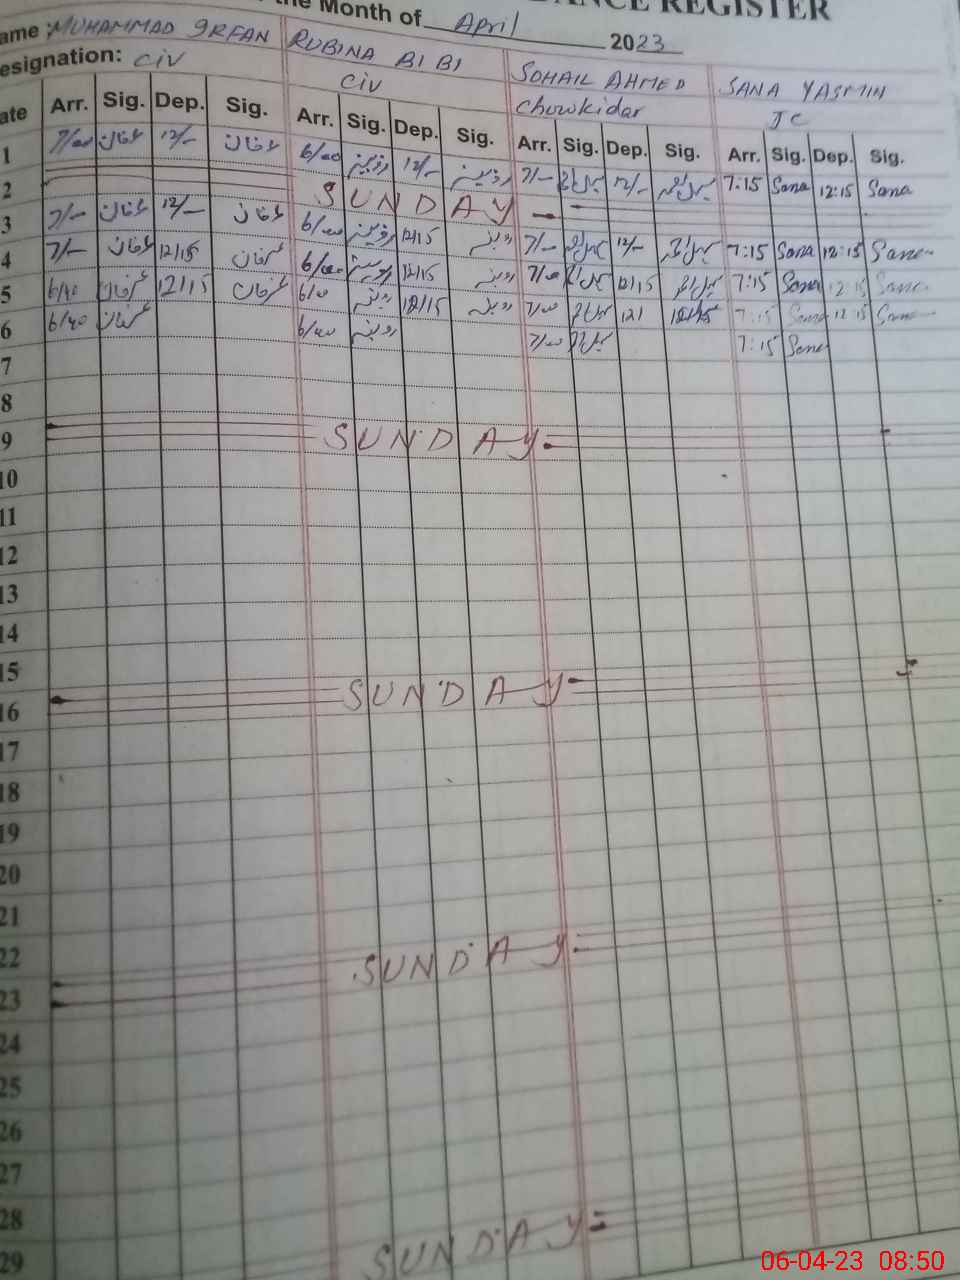 ANCE REGISTER
the Month of April 2023
ame MUHAMMAD IRFAN RUBINA BIBI SOHAIL AHMED SANA YASMIN
esignation: civ civ Chowkidar JC
ate Arr. Sig. Dep. Sig. Arr. Sig. Dep. Sig. Arr. Sig. Dep. Sig. Arr. Sig. Dep. Sig.
1 7/00 عرفان 12/- عرفان 6/00 روبینہ 12/- روبینہ 7/- 12/- 7:15 Sana 12:15 Sana
2 SUNDAY
3 7/- عرفان 12/- عرفان 6/00 روبینہ 12/15 روبینہ 7/- 12/- 7:15 Sana 12:15 Sana
4 7/- عرفان 12/15 عرفان 6/00 روبینہ 12/15 روبینہ 7/00 12/15 7:15 Sana 12:15 Sana
5 6/40 عرفان 12/15 عرفان 6/0 روبینہ 12/15 روبینہ 7/00 7:15 Sana 12:15 Sana
6 6/40 عرفان 6/00 روبینہ 7/00 7:15 Sana
7
8
9 SUNDAY
10
11
12
13
14
15
16 SUNDAY
17
18
19
20
21
22
23 SUNDAY
24
25
26
27
28
29 SUNDAY
06-04-23 08:50